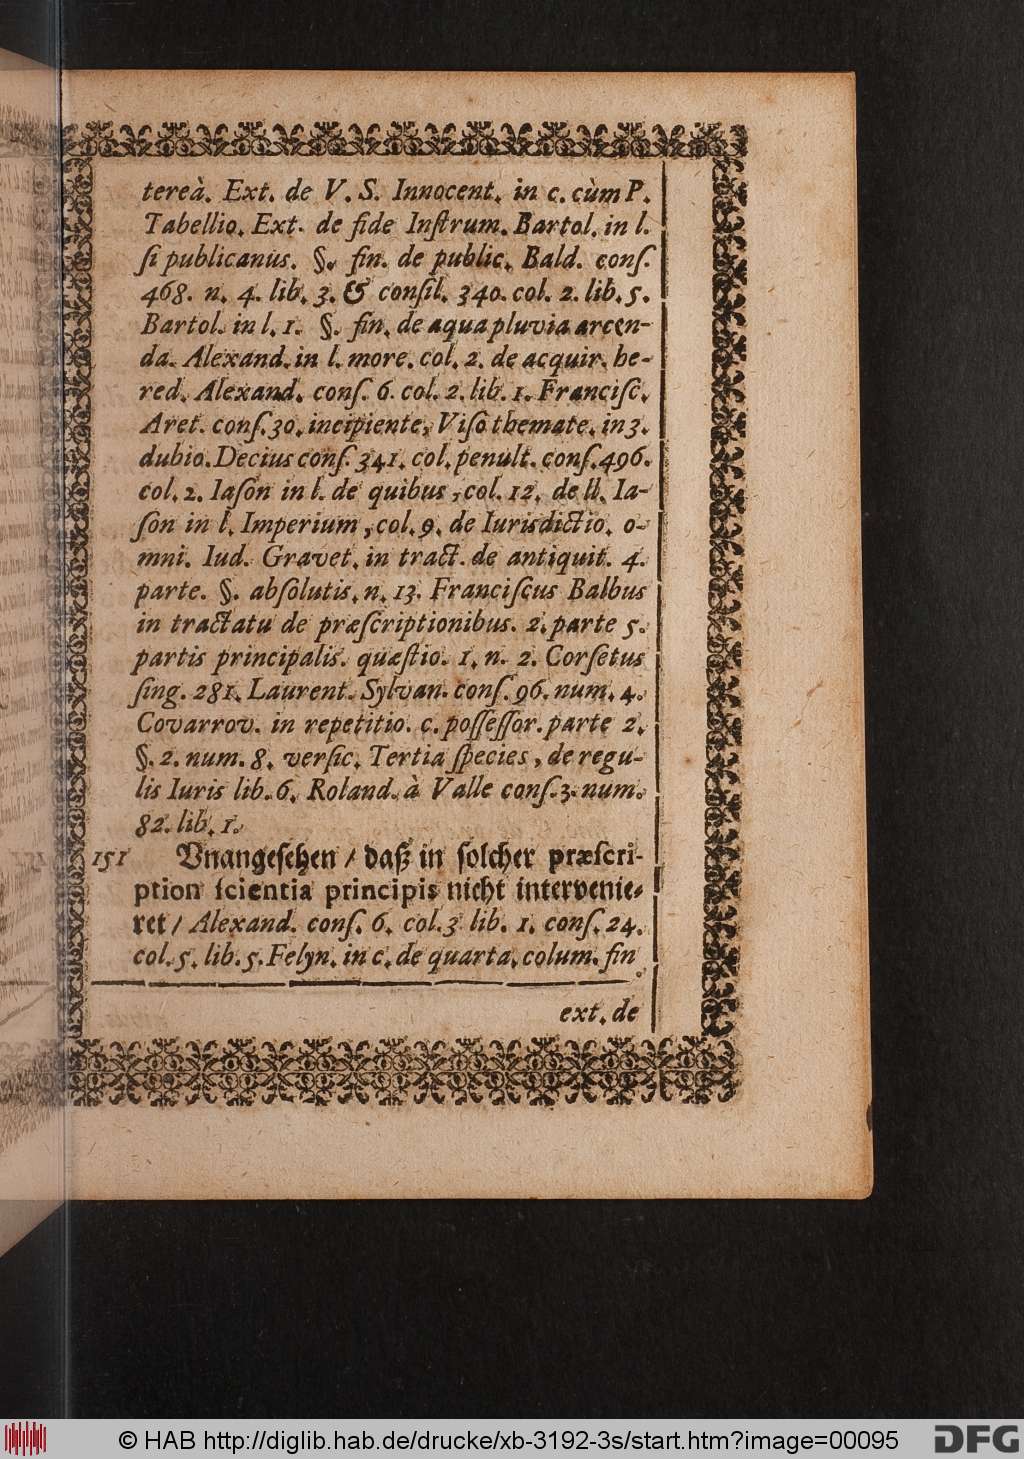 tereà. Ext. de V. S. Innocent. in c. cùm P.
Tabellio. Ext. de fide Inſtrum. Bartol. in l.
ſi publicanus. §. fin. de public. Bald. conſ.
468. n. 4. lib. 3. & conſil. 340. col. 2. lib. 5.
Bartol. in l. 1. §. fin. de aqua pluvia arcen-
da. Alexand. in l. more. col. 2. de acquir. he-
red. Alexand. conſ. 6. col. 2. lib. 1. Franciſc.
Aret. conſ. 30. incipiente, Viſo themate. in 3.
dubio. Decius conſ. 341. col. penult. conſ. 496.
col. 2. Iaſon in l. de quibus, col. 12. de ll. Ia-
ſon in l. Imperium, col. 9. de Iurisdictio. o-
mni. Iud. Gravet. in tract. de antiquit. 4.
parte. §. abſolutis. n. 13. Franciſcus Balbus
in tractatu de præſcriptionibus. 2. parte 5.
partis principalis. quæſtio. 1. n. 2. Corſetus
ſing. 281. Laurent. Sylvan. conſ. 96. num. 4.
Covarrov. in repetitio. c. poſſeſſor. parte 2.
§. 2. num. 8. verſic. Tertia ſpecies, de regu-
lis Iuris lib. 6. Roland. à Valle conſ. 3. num.
82. lib. 1.
151 Vnangeſehen / daß in ſolcher præſcri-
ption ſcientia principis nicht intervenie-
ret / Alexand. conſ. 6. col. 3 lib. 1. conſ. 24.
col. 5. lib. 5. Felyn. in c. de quarta. colum. fin
ext. de
© HAB http://diglib.hab.de/drucke/xb-3192-3s/start.htm?image=00095
DFG